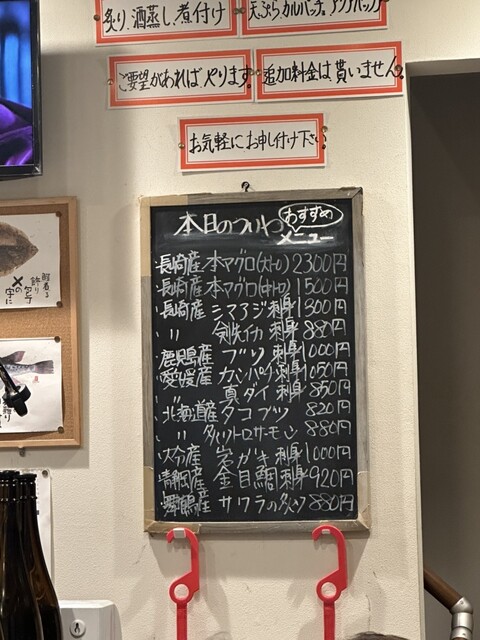 炙り、酒蒸し、煮付け
天ぷら、カルパッチョ、アクアパッツァ
ご要望があればやります。
追加料金は貰いません。
お気軽にお申し付け下さい
本日の
おすすめ
メニュー
長崎産 本マグロ(大トロ) 2300円
長崎産 本マグロ(中トロ) 1500円
長崎産 シマアジ刺身 1300円
〃 剣先イカ 刺身 880円
鹿児島産 ブリ 刺身 1000円
愛媛産 カンパチ刺身 1050円
〃 真ダイ 刺身 850円
北海道産 タコブツ 820円
〃 トロサーモン 880円
大分産 岩ガキ 刺身 1000円
静岡産 金目鯛刺身 920円
舞鶴産 サワラの炙り 880円